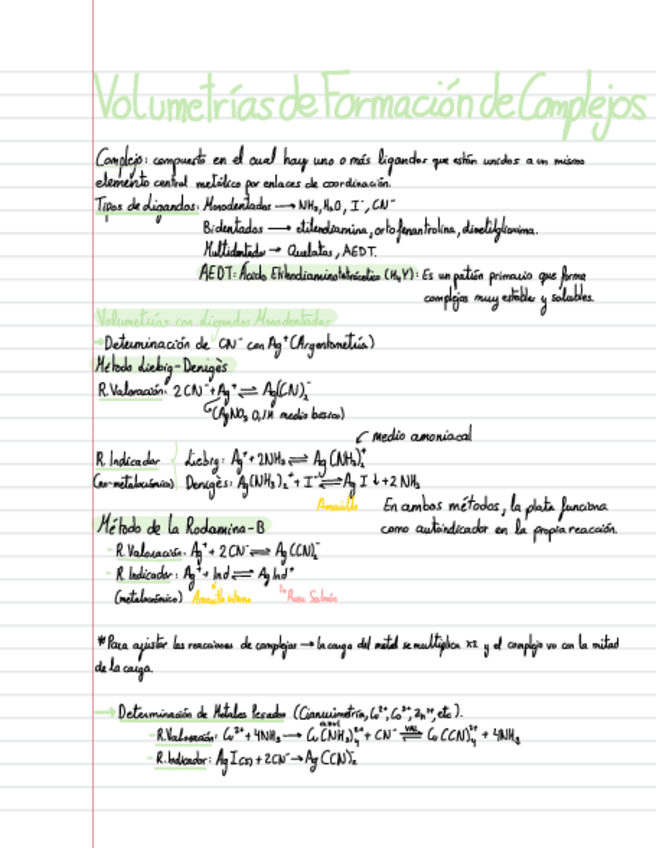 Volumetrías de Formación de Complejos
Complejo: compuesto en el cual hay uno o más ligandos que están unidos a un mismo
elemento central metálico por enlaces de coordinación.
Tipos de Ligandos: Monodentados → NH₃, H₂O, I⁻, CN⁻
Bidentados → etilendiamina, ortofenantrolina, dimetilglioxima.
Multidentado → Quelatos, AEDT.
AEDT: Ácido Etilendiaminotetracético (H₄Y): Es un patrón primario que forma
complejos muy estables y solubles.
Volumetrías con ligandos Monodentados
→ Determinación de CN⁻ con Ag⁺ (Argentometría)
Método Liebig-Denigès
R. Valoración: 2CN⁻ + Ag⁺ ⇌ Ag(CN)₂⁻
(AgNO₃ 0,1M medio básico)
medio amoniacal
R. Indicador Liebig: Ag⁺ + 2NH₃ ⇌ Ag(NH₃)₂⁺
(no-metalocrómico) Denigès: Ag(NH₃)₂⁺ + I⁻ ⇌ AgI↓ + 2NH₃
Amarillo
En ambos métodos, la plata funciona
como autoindicador en la propia reacción.
Método de la Rodamina-B
- R. Valoración: Ag⁺ + 2CN⁻ ⇌ Ag(CN)₂⁻
- R. Indicador: Ag⁺ + Ind ⇌ AgInd⁺
(metalocrómico) Amarillo Rosa Salmón
*Para ajustar las reacciones de complejos → la carga del metal se multiplica x2 y el complejo va con la mitad
de la carga.
→ Determinación de Metales Pesados (Cianurimetría, Co²⁺, Zn²⁺, etc).
- R. Valoración: + 4NH₃ → (NH₃)₄²⁺ + CN⁻ ⇌ (CN)₄ + 4NH₃
azul
VAL
- R. Indicador: AgI(s) + 2CN⁻ → Ag(CN)₂⁻